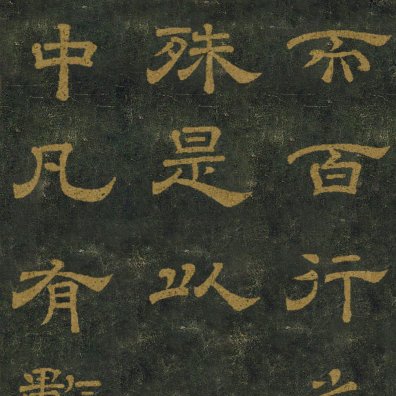 而百行
殊是以
中凡有